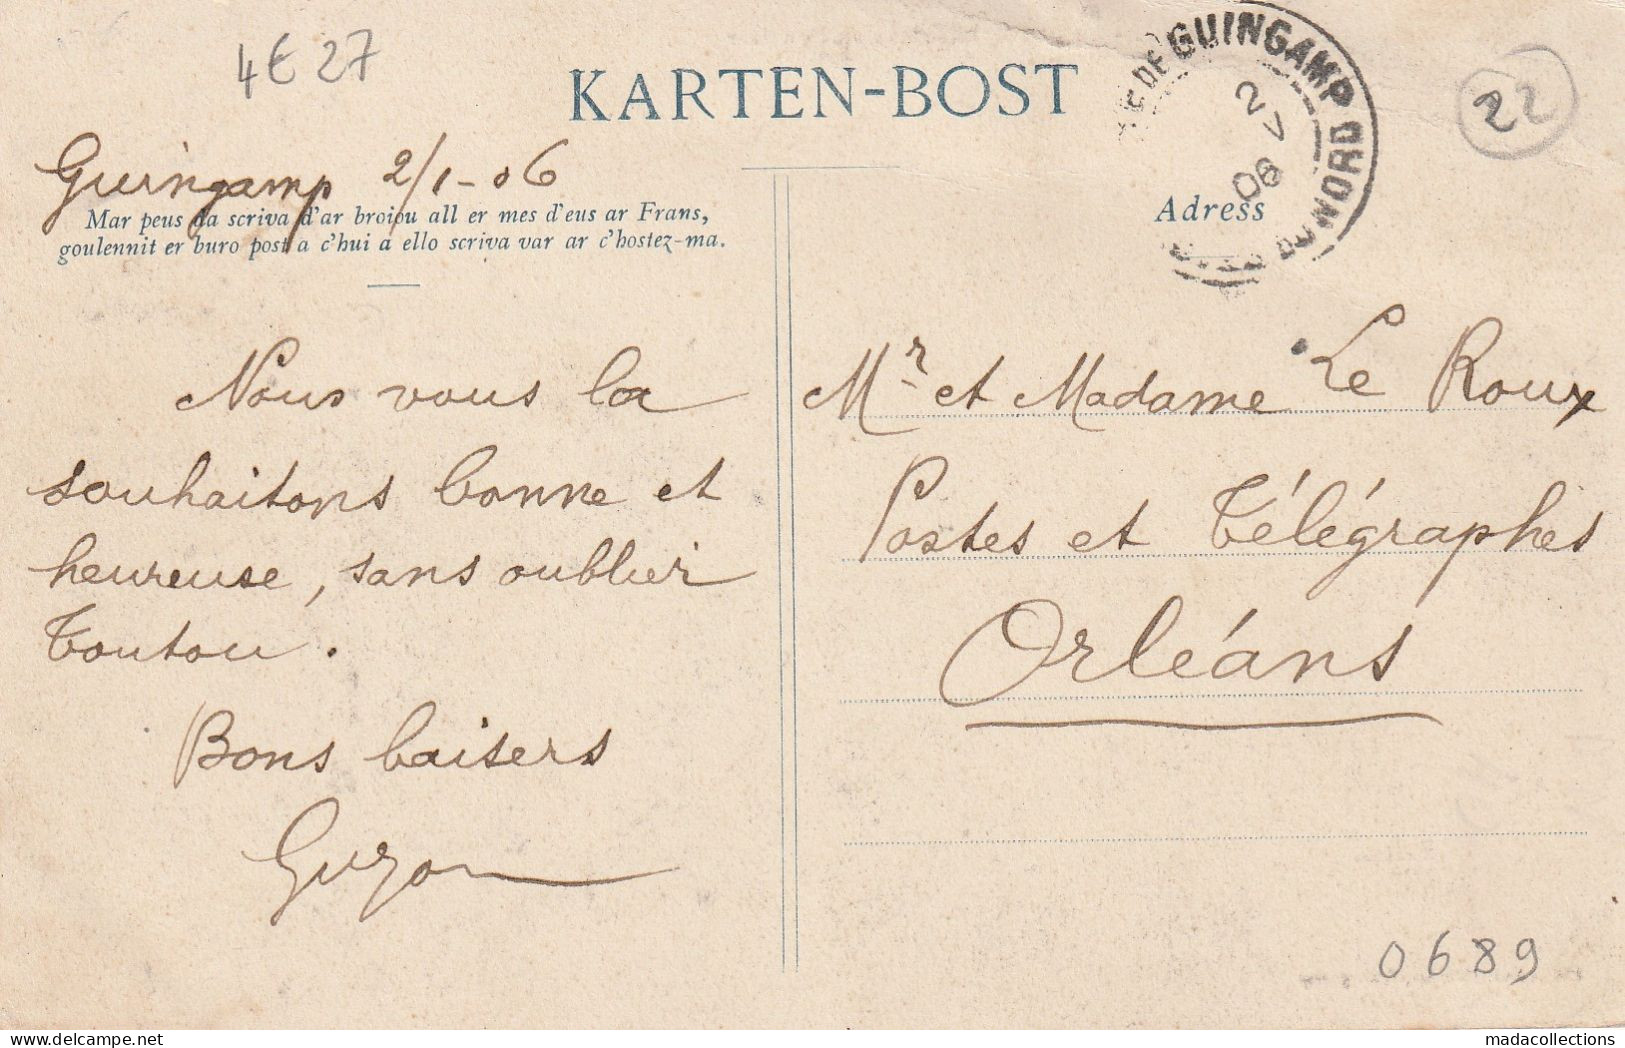 4€ 27
KARTEN-BOST
22
Guingamp 2/1-06
Mar peus da scriva d'ar broiou all er mes d'eus ar Frans,
goulennit er buro post a c'hui a ello scriva var ar c'hostez-ma.
DE GUINGAMP
DU NORD
2
06
Adress
Nous vous la
souhaitons bonne et
heureuse, sans oublier
Toutou.
Bons baisers
Mr et Madame Le Roux
Postes et Télégraphes
Orléans
0689
www.delcampe.net
madacollections